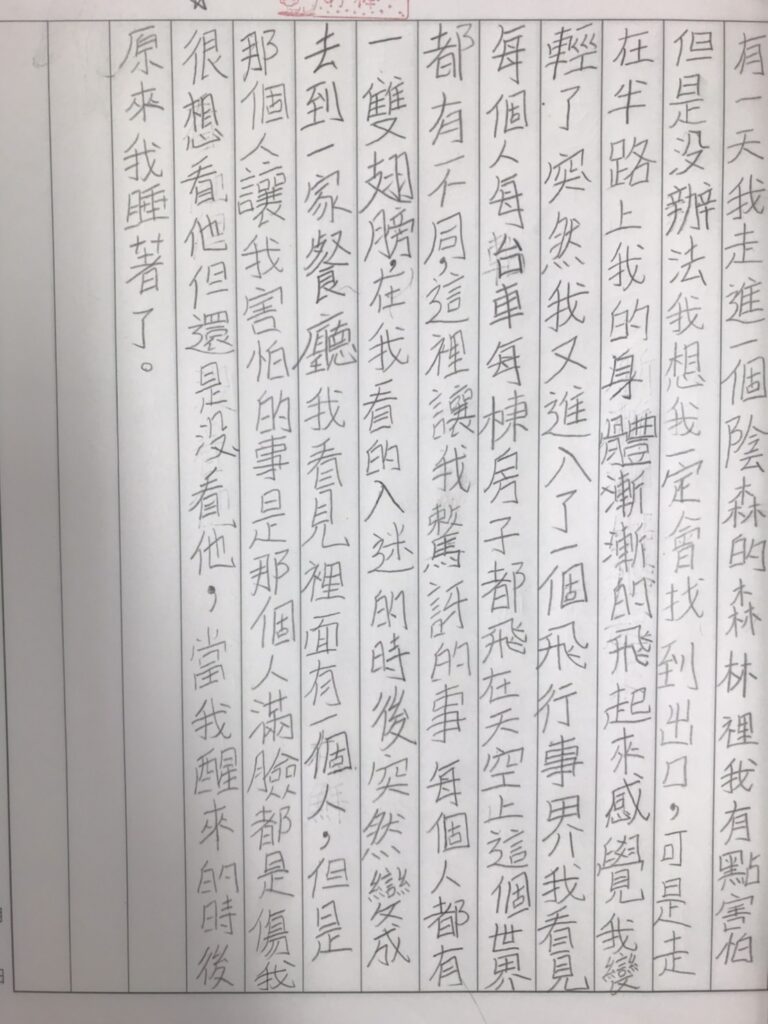 有一天我走進一個陰森的森林裡我有點害怕
但是没辦法我想我一定會找到出口，可是走
在半路上我的身體漸漸的飛起來感覺我變
輕了突然我又進入了一個飛行事界我看見
每個人每台車每棟房子都飛在天空上這個世界
都有一不同，這裡讓我驚訝的事每個人都有
一雙翅膀，在我看的入迷的時後突然變成
去到一家餐廳我看見裡面有一個人，但是
那個人讓我害怕的事是那個人滿臉都是傷我
很想看他但還是没看他，當我醒來的時後
原來我睡著了。